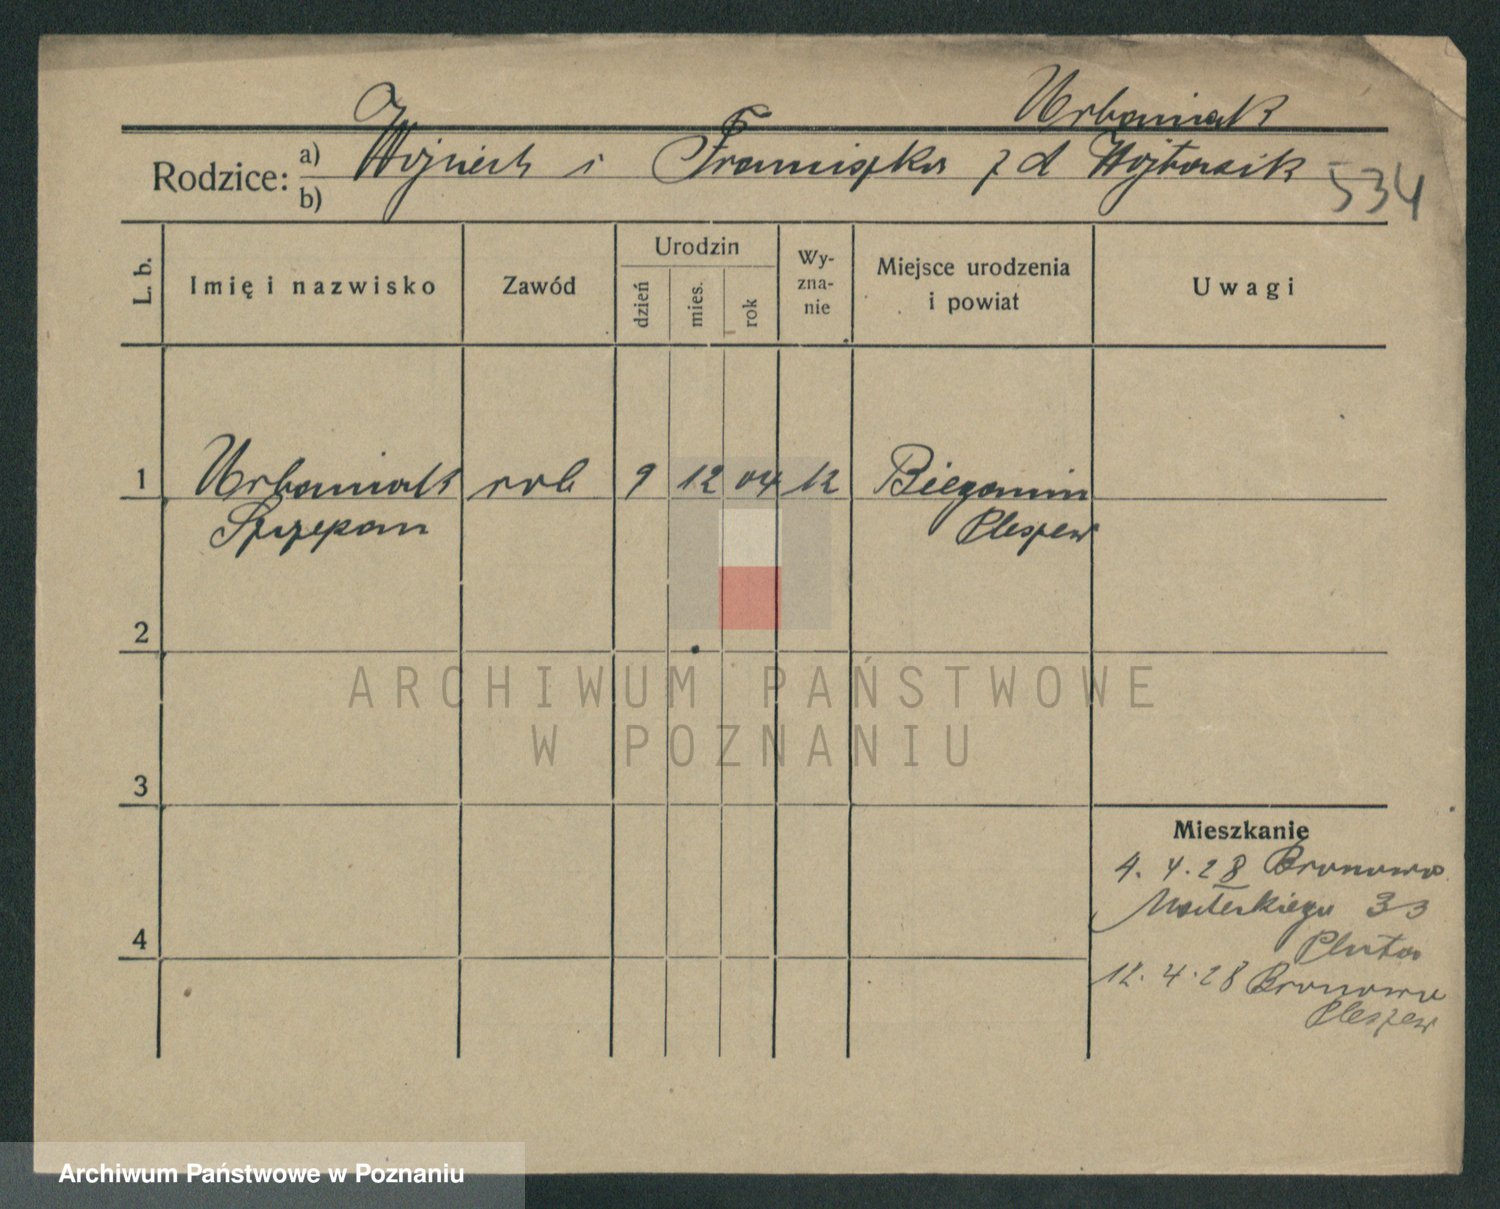 Urbaniak
Rodzice: a) Wojciech i Franciszka z d Wojtasik 534
b)
L. b. Imię i nazwisko Zawód Urodzin dzień mies. rok Wy-zna-nie Miejsce urodzenia i powiat Uwagi
1 Urbaniak rob 9 12 04 k Bieganin
Szczepan Pleszew
2
ARCHIWUM PAŃSTWOWE
W POZNANIU
3
Mieszkanie
4. 4. 28 Bronowo
33
4
12. 4. 28 Bronowo
Pleszew
Archiwum Państwowe w Poznaniu